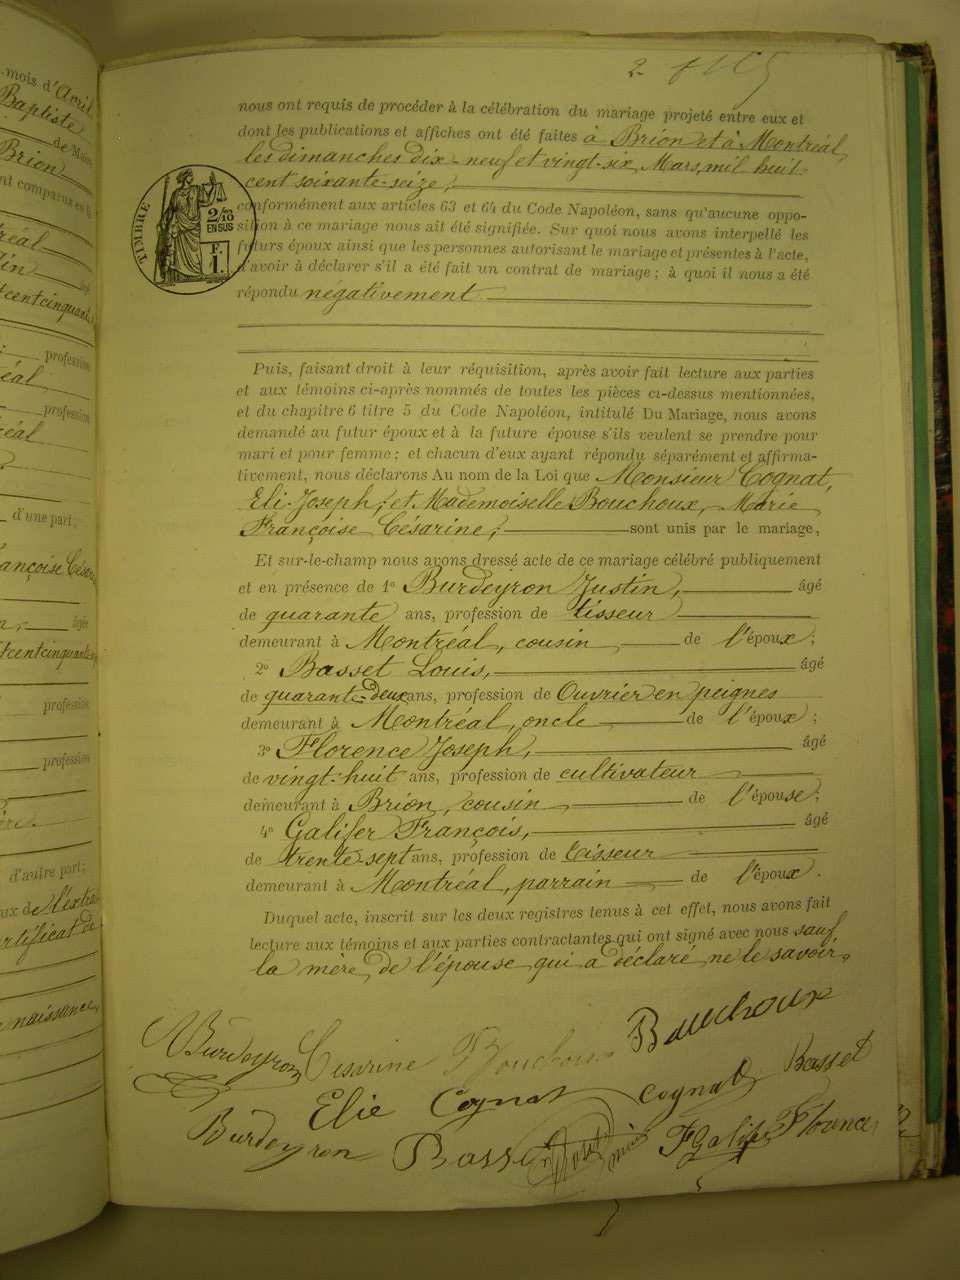 mois d'Avril
Baptiste
de Mars
Brion
nt comparus en la
réal
lin
tcentcinquant
profession
éal
profession
éal
d'une part;
ançoise Césa
âgée
tcentcinquante
profession
profession
ère.
d'autre part;
ux de l'extra
rtificat de
naissance,
2
nous ont requis de procéder à la célébration du mariage projeté entre eux et
dont les publications et affiches ont été faites à Brion et à Montréal,
les dimanches dix-neuf et vingt-six Mars, mil huit
cent soixante-seize,
TIMBRE
2/10
EN SUS
F.
1.
conformément aux articles 63 et 64 du Code Napoléon, sans qu'aucune oppo-
sition à ce mariage nous ait été signifiée. Sur quoi nous avons interpellé les
futurs époux ainsi que les personnes autorisant le mariage et présentes à l'acte,
d'avoir à déclarer s'il a été fait un contrat de mariage; à quoi il nous a été
répondu négativement
Puis, faisant droit à leur réquisition, après avoir fait lecture aux parties
et aux témoins ci-après nommés de toutes les pièces ci-dessus mentionnées,
et du chapitre 6 titre 5 du Code Napoléon, intitulé Du Mariage, nous avons
demandé au futur époux et à la future épouse s'ils veulent se prendre pour
mari et pour femme; et chacun d'eux ayant répondu séparément et affirma-
tivement, nous déclarons Au nom de la Loi que Monsieur Cognat,
Eli-Joseph, et Mademoiselle Bouchoux, Marie
Françoise Césarine, sont unis par le mariage,
Et sur-le-champ nous avons dressé acte de ce mariage célébré publiquement
et en présence de 1º Burdeyron Justin, âgé
de quarante ans, profession de tisseur
demeurant à Montréal, cousin de l'époux;
2º Basset Louis, âgé
de quarante-deux ans, profession de Ouvrier en peignes
demeurant à Montréal, oncle de l'époux;
3º Florence Joseph, âgé
de vingt-huit ans, profession de cultivateur
demeurant à Brion, cousin de l'épouse;
4º Galifer François, âgé
de trente-sept ans, profession de tisseur
demeurant à Montréal, parrain de l'époux.
Duquel acte, inscrit sur les deux registres tenus à cet effet, nous avons fait
lecture aux témoins et aux parties contractantes qui ont signé avec nous sauf
la mère de l'épouse qui a déclaré ne le savoir.
Burdeyron Cesarine Bouchoux Bouchoux
Elie Cognat Cognat Basset
Burdeyron Basset FGalifer Florence